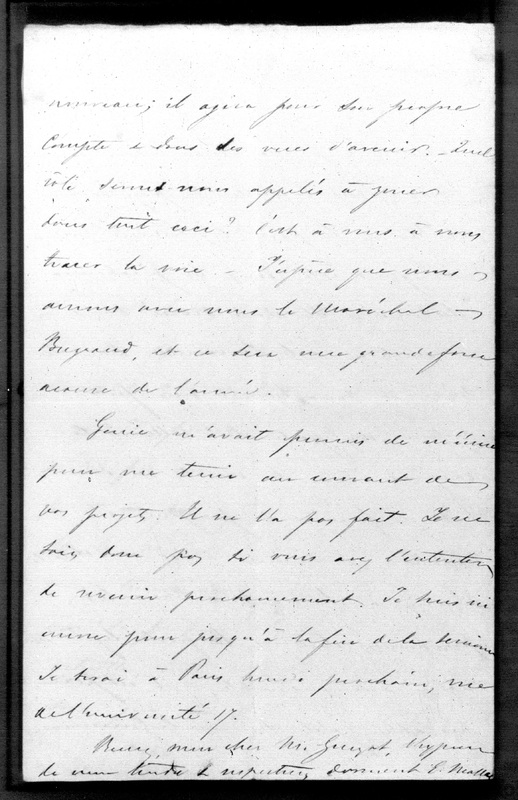 nouveau; il agira pour son propre
compte & dans des vues d'avenir. – Quel
rôle sommes nous appelés à jouer
dans tout ceci? C'est à nous à nous
tracer la voie – J'espère que nous
aurons avec nous le Maréchal
Bugeaud, et ce sera une grande force
à cause de l'armée.
Genie m'avait promis de m'écrire
pour me tenir au courant de
vos projets. Il ne l'a pas fait. Je ne
sais donc pas si vous avez l'intention
de revenir prochainement. Je suis ici
encore pour jusqu'à la fin de la semaine
Je serai à Paris lundi prochain, rue
de l'université 17.
mon cher M. Guizot,
de mon tendre & dévouement E.